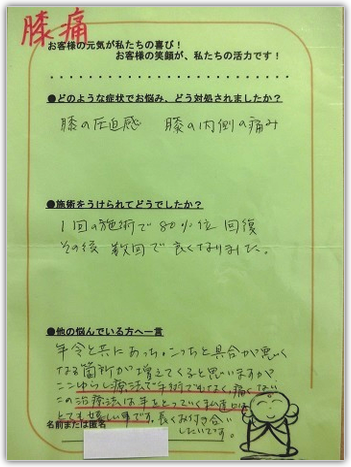 膝痛
お客様の元気が私たちの喜び！
お客様の笑顔が、私たちの活力です！
●どのような症状でお悩み、どう対処されましたか？
膝の圧迫感　膝の内側の痛み
●施術をうけられてどうでしたか？
1回の施術で80%位 回復
その後 数回で良くなりました。
●他の悩んでいる方へ一言
年令と共にあっち、こっちと具合が悪く
なる箇所が増えてくると思いますが
ここゆらし療法で手術でもなく痛くない
この治療法は年をとっていく私達には
とても嬉しい事です。長くお付き合い
したいです。
名前または匿名